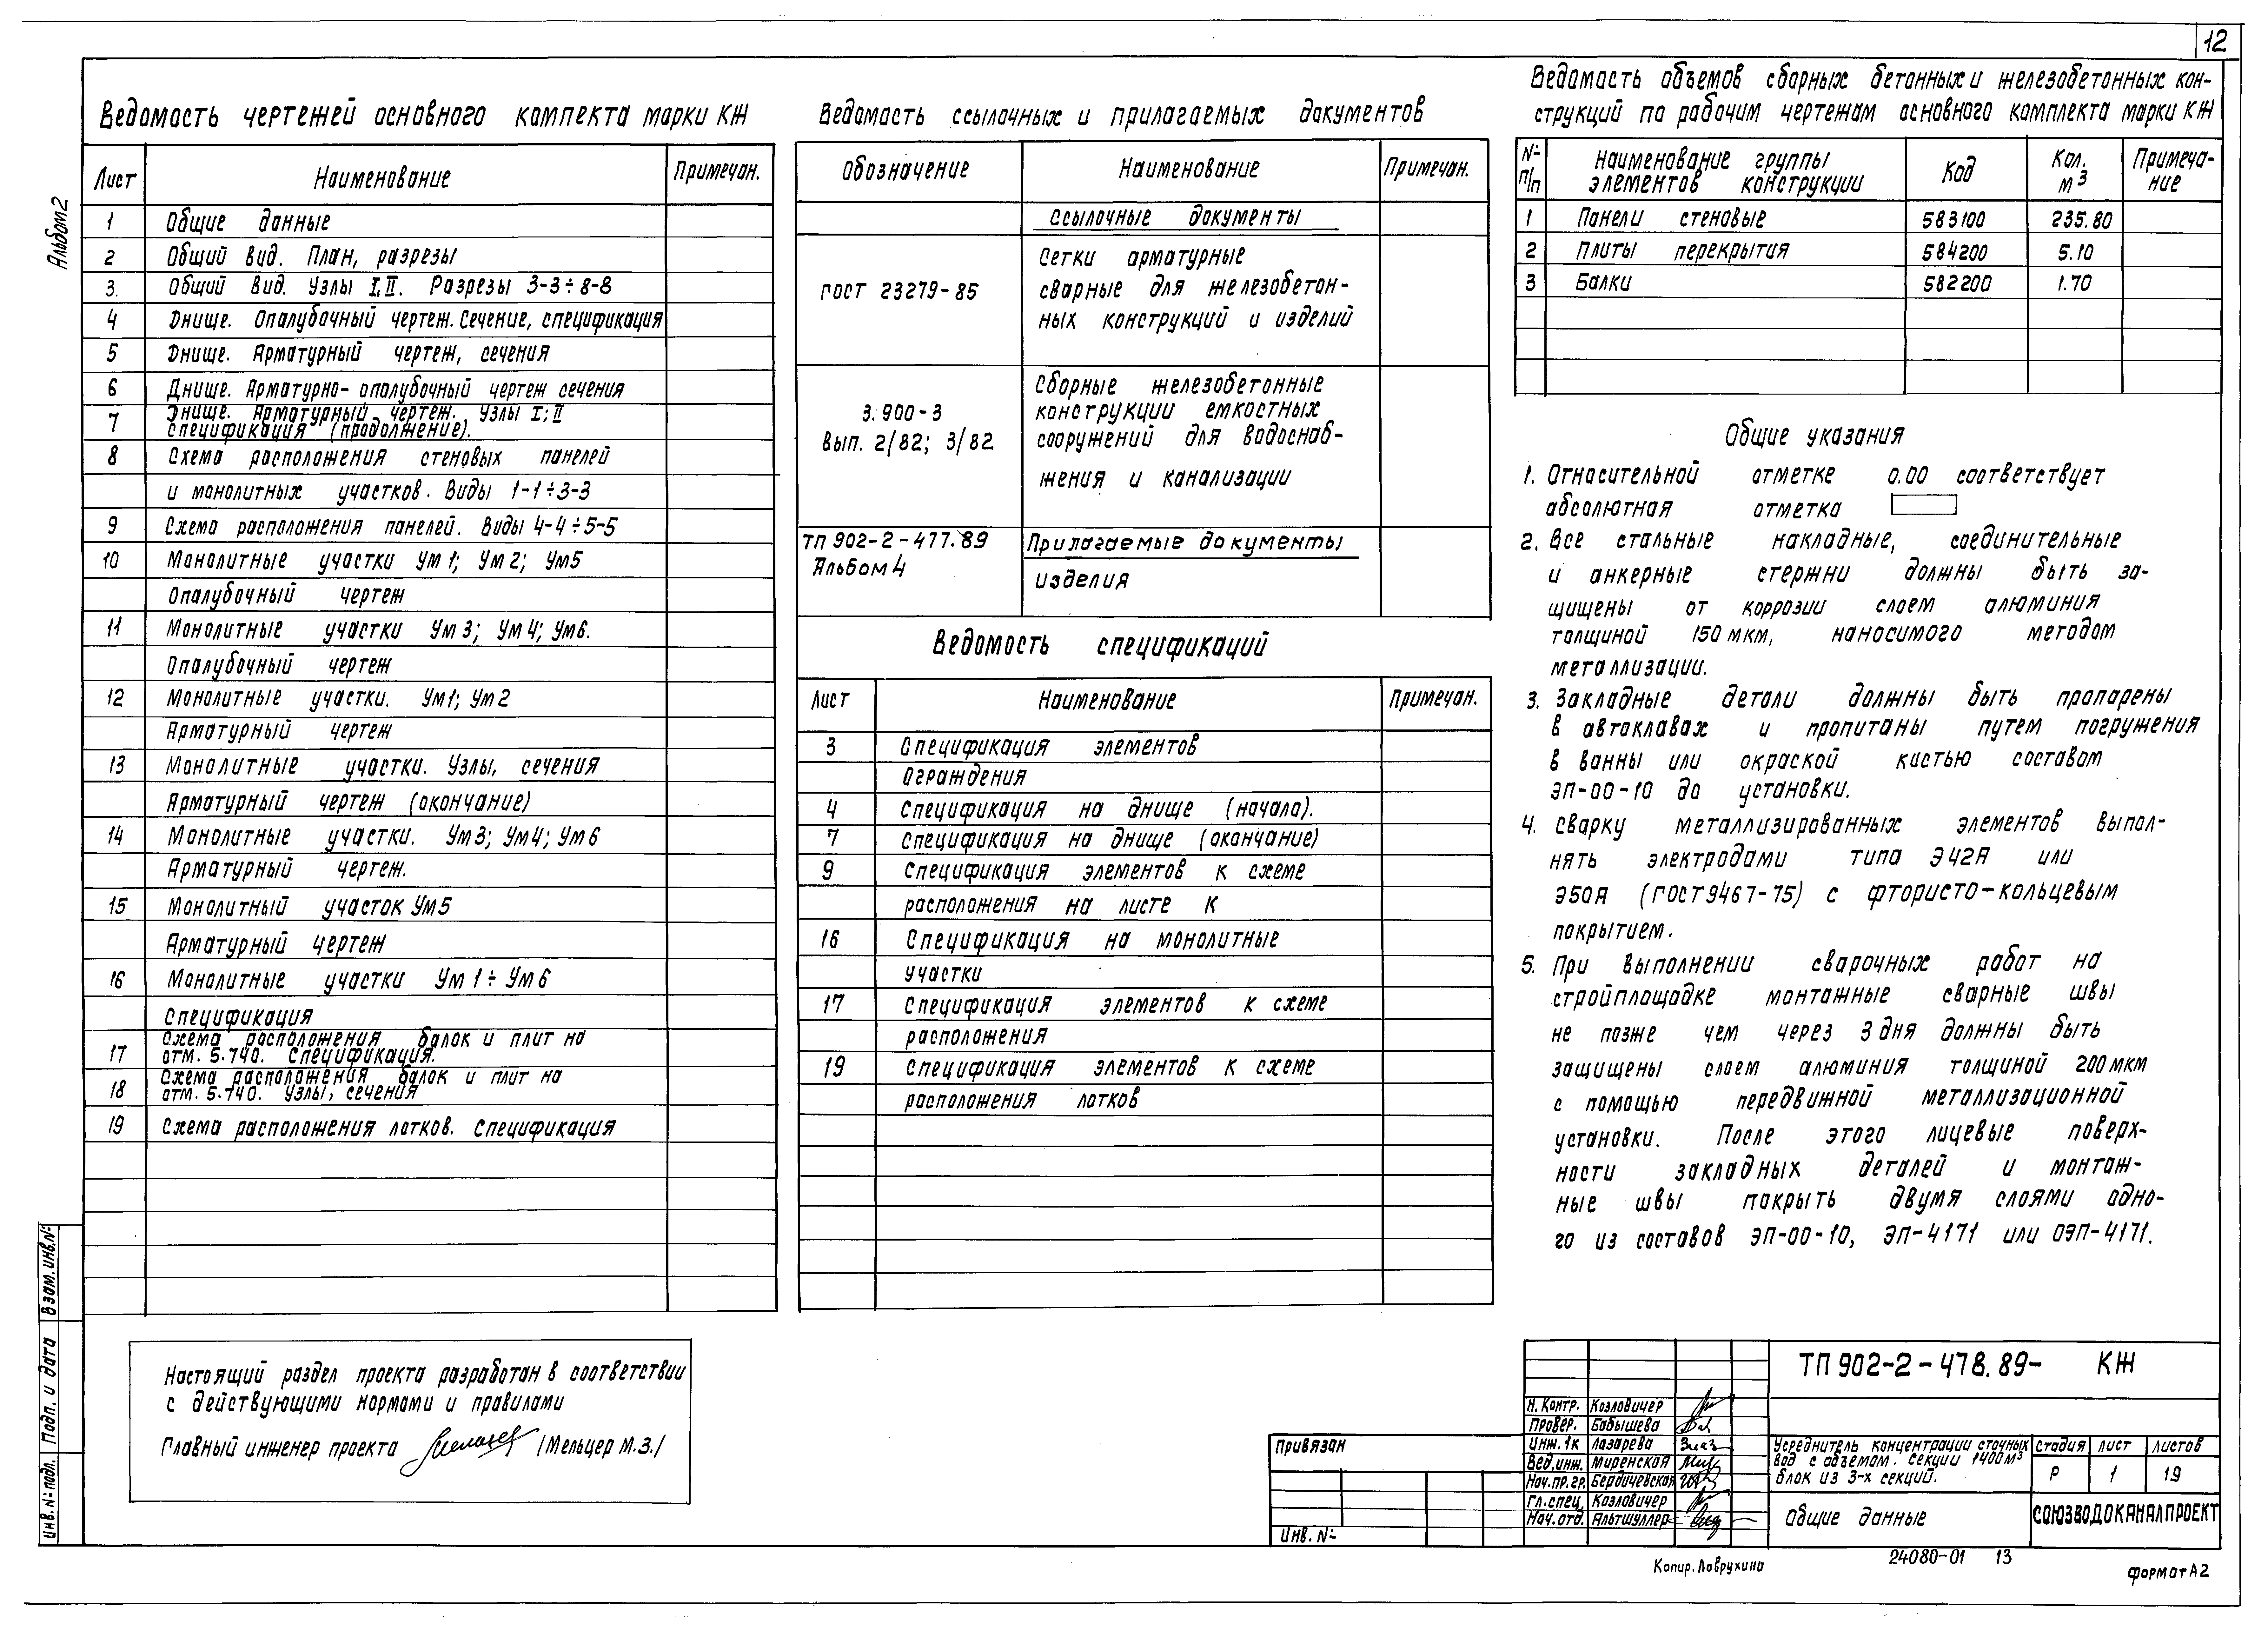 12
Альбом 2
Ведомость чертежей основного комплекта марки КЖ
Лист Наименование Примечан.
1 Общие данные
2 Общий вид. План, разрезы
3. Общий вид. Узлы I, II. Разрезы 3-3÷8-8
4 Днище. Опалубочный чертеж. Сечение, спецификация
5 Днище. Арматурный чертеж, сечения
6 Днище. Арматурно-опалубочный чертеж сечения
7 Днище. Арматурный чертеж. Узлы I; II
спецификация (продолжение).
8 Схема расположения стеновых панелей
и монолитных участков. Виды 1-1÷3-3
9 Схема расположения панелей. Виды 4-4÷5-5
10 Монолитные участки Ум1; Ум2; Ум5
Опалубочный чертеж
11 Монолитные участки Ум3; Ум4; Ум6.
Опалубочный чертеж
12 Монолитные участки. Ум1; Ум2
Арматурный чертеж
13 Монолитные участки. Узлы, сечения
Арматурный чертеж (окончание)
14 Монолитные участки. Ум3; Ум4; Ум6
Арматурный чертеж.
15 Монолитный участок Ум5
Арматурный чертеж
16 Монолитные участки Ум1÷Ум6
Спецификация
17 Схема расположения балок и плит на
отм. 5.740. Спецификация.
18 Схема расположения балок и плит на
отм. 5.740. Узлы, сечения
19 Схема расположения лотков. Спецификация
Настоящий раздел проекта разработан в соответствии
с действующими нормами и правилами
Главный инженер проекта /Мельцер М.З./
Ведомость ссылочных и прилагаемых документов
Обозначение Наименование Примечан.
Ссылочные документы
ГОСТ 23279-85 Сетки арматурные
сварные для железобетон-
ных конструкций и изделий
3.900-3
Вып. 2/82; 3/82
Сборные железобетонные
конструкции емкостных
сооружений для водоснаб-
жения и канализации
ТП 902-2-477.89
Альбом 4
Прилагаемые документы
изделия
Ведомость спецификаций
Лист Наименование Примечан.
3 Спецификация элементов
Ограждения
4 Спецификация на днище (начало).
7 Спецификация на днище (окончание)
9 Спецификация элементов к схеме
расположения на листе К
16 Спецификация на монолитные
участки
17 Спецификация элементов к схеме
расположения
19 Спецификация элементов к схеме
расположения лотков
Ведомость объемов сборных бетонных и железобетонных кон-
струкций по рабочим чертежам основного комплекта марки КЖ
№ п/п Наименование группы элементов конструкции Код Кол. м3 Примеча-ние
1 Панели стеновые 583100 235.80
2 Плиты перекрытия 584200 5.10
3 Балки 582200 1.70
Общие указания
1. Относительной отметке 0.00 соответствует
абсолютная отметка
2. Все стальные накладные, соединительные
и анкерные стержни должны быть за-
щищены от коррозии слоем алюминия
толщиной 150 мкм, наносимого методом
металлизации.
3. Закладные детали должны быть пропарены
в автоклавах и пропитаны путем погружения
в ванны или окраской кистью составом
ЭП-00-10 до установки.
4. Сварку металлизированных элементов выпол-
нять электродами типа Э42А или
Э50А (ГОСТ 9467-75) с фтористо-кольцевым
покрытием.
5. При выполнении сварочных работ на
стройплощадке монтажные сварные швы
не позже чем через 3 дня должны быть
защищены слоем алюминия толщиной 200 мкм
с помощью передвижной металлизационной
установки. После этого лицевые поверх-
ности закладных деталей и монтаж-
ные швы покрыть двумя слоями одно-
го из составов ЭП-00-10, ЭП-4171 или ОЭП-4171.
Инв. № подл. Подп. и дата Взам. инв. №
Привязан
Инв. №
Н. Контр. Козловичер
Провер. Бабышева
Инж. 1к Лазарева
Вед. инж. Миренская
Нач. пр. гр. Бердичевская
Гл. спец. Козловичер
Нач. отд. Альтшуллер
ТП 902-2-478.89- КЖ
Усреднитель концентрации сточных
вод с объемом. секции 1400 м3
блок из 3-х секций.
Стадия Лист Листов
Р 1 19
Общие данные
СОЮЗВОДОКАНАЛПРОЕКТ
Копир. Лаврухина
24080-01 13
формат А2